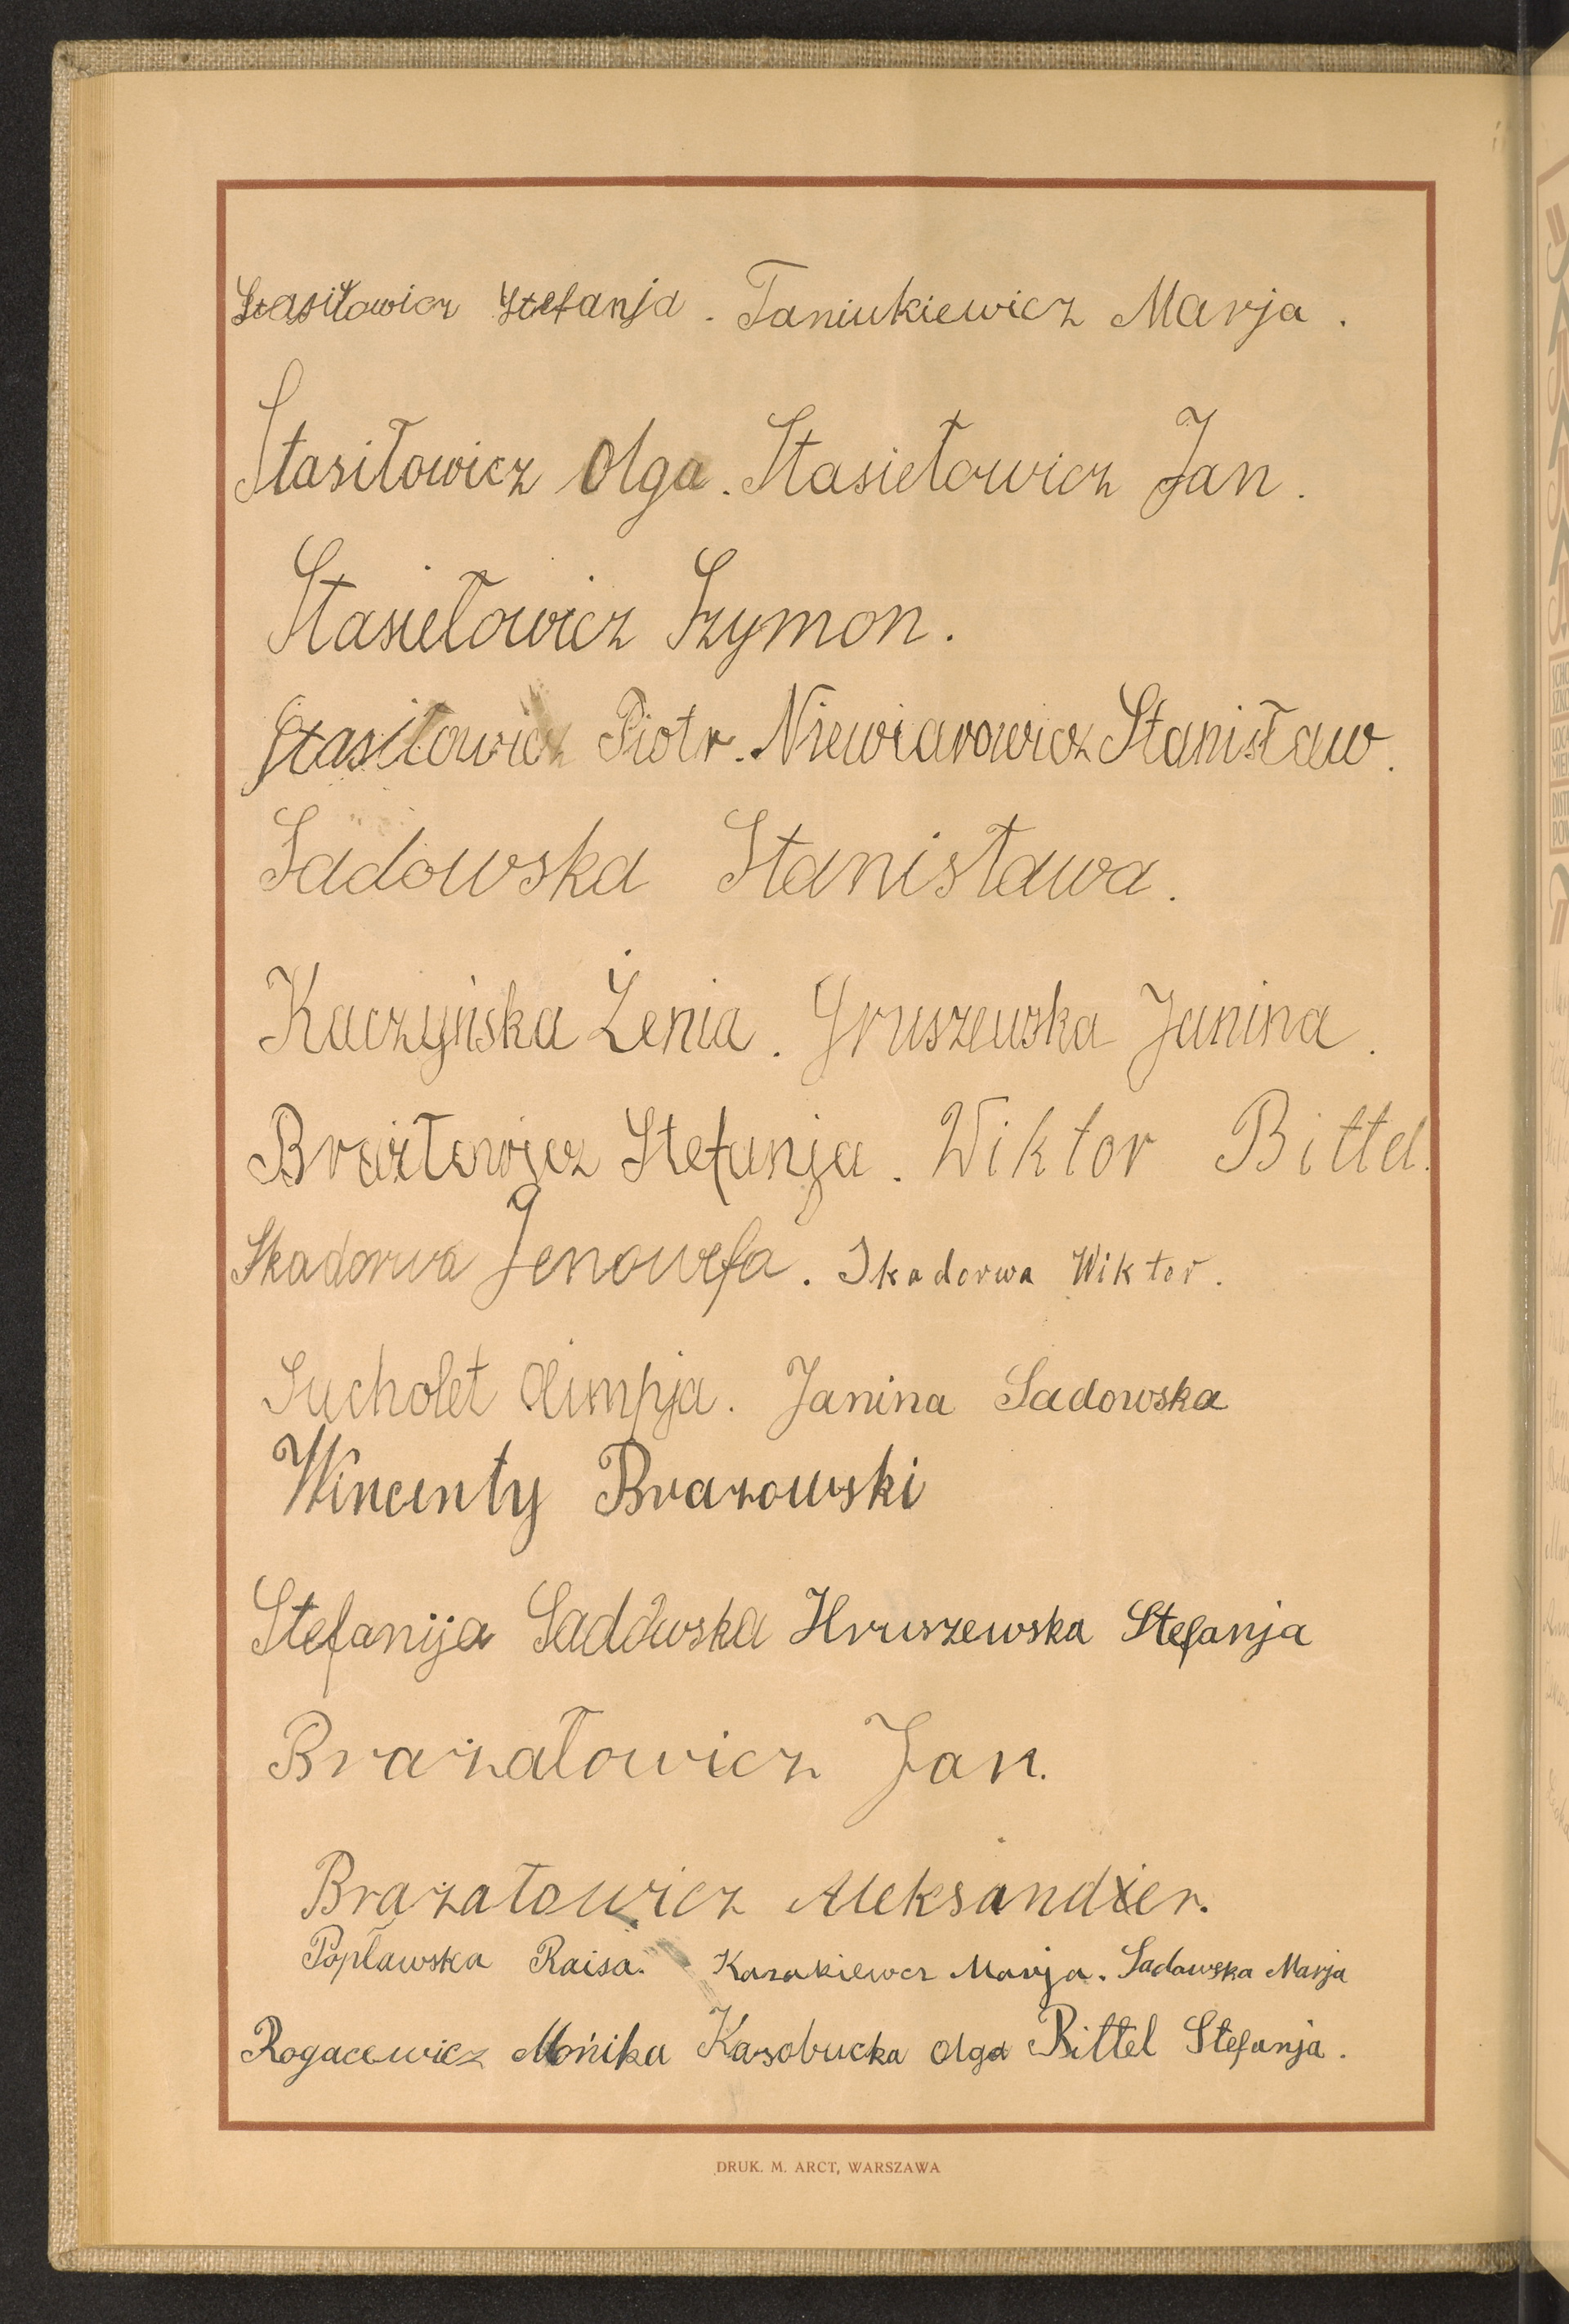 Stasiłowicz Stefanja. Taniukiewicz Marja.
Stasiłowicz Olga. Stasiełowicz Jan.
Stasiełowicz Szymon.
Stasiłowicz Piotr. Niewiarowicz Stanisław.
Sadowska Stanisława.
Kaczyńska Żenia. Gruszewska Janina.
Braziłowicz Stefanja. Wiktor Bittel.
Skadorwa Jenowefa. Skadorwa Wiktor.
Sucholet Olimpja. Janina Sadowska
Wincenty Brazowski
Stefanija Sadowska Hruszewska Stefanja
Brazałowicz Jan.
Brazałowicz Aleksander.
Popławska Raisa. Kazakiewcz Marja. Sadowska Marja
Rogacewicz Mońika Kazobucka Olga Bittel Stefanja.
DRUK. M. ARCT, WARSZAWA